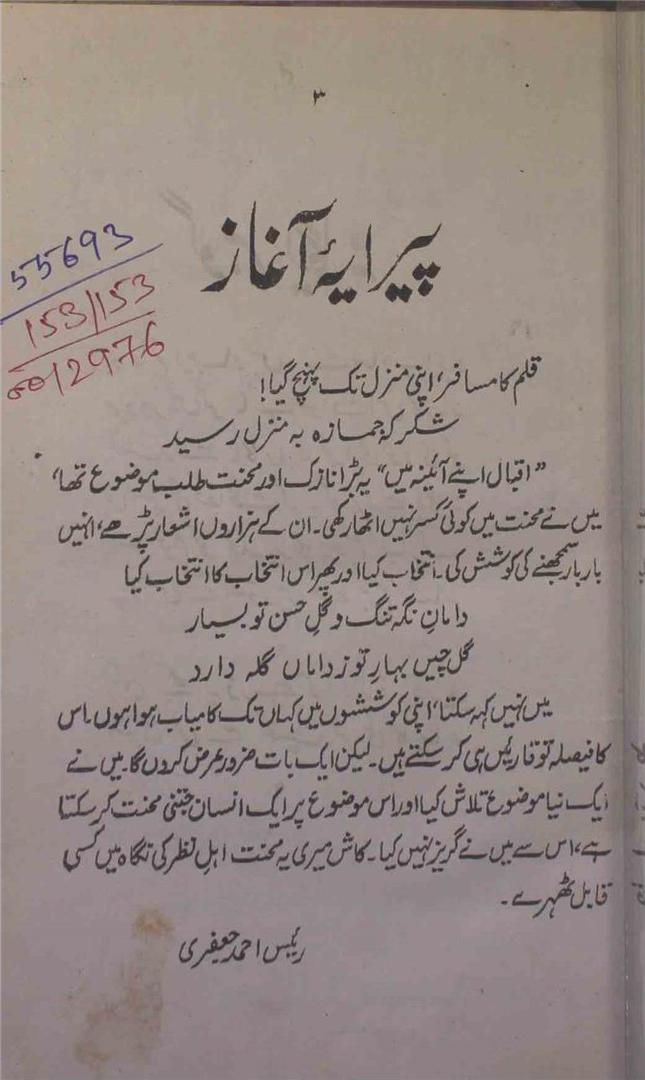 ۳
پیرایۂ آغاز
55693
153/153
0012976
قلم کا مسافر، اپنی منزل تک پہنچ گیا!
شکر کہ جمازہ بہ منزل رسید
”اقبال اپنے آئینہ میں“ یہ بڑا نازک اور محنت طلب موضوع تھا،
میں نے محنت میں کوئی کسر نہیں اٹھا رکھی۔ ان کے ہزاروں اشعار پڑھے، انہیں
بار بار سمجھنے کی کوشش کی۔ انتخاب کیا اور پھر اس انتخاب کا انتخاب کیا
دامانِ نگہ تنگ و گلِ حسن تو بسیار
گل چیں بہارِ تو ز داماں گلہ دارد
میں نہیں کہہ سکتا، اپنی کوششوں میں کہاں تک کامیاب ہوا ہوں۔ اس
کا فیصلہ تو قارئیں ہی کر سکتے ہیں۔ لیکن ایک بات ضرور عرض کروں گا۔ میں نے
ایک نیا موضوع تلاش کیا اور اس موضوع پر ایک انسان جتنی محنت کر سکتا
ہے، اس سے میں نے گریز نہیں کیا۔ کاش میری یہ محنت اہلِ نظر کی نگاہ میں کسی
قابل ٹھہرے۔
رئیس احمد جعفری